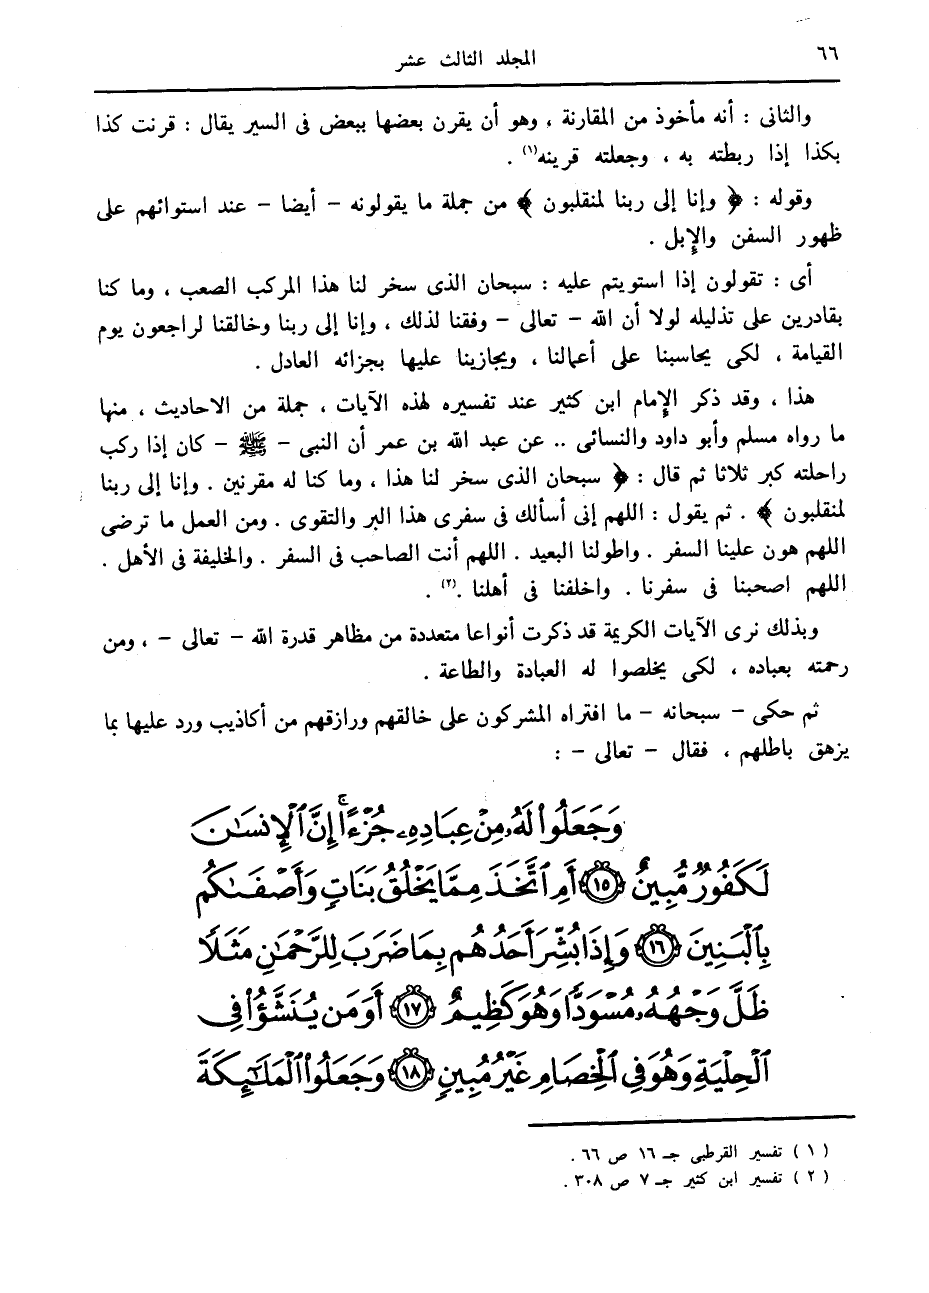 ٦٦
المجلد الثالث عشر
والثانى : أنه مأخوذ من المقارنة ، وهو أن يقرن بعضها ببعض فى السير يقال : قرنت كذا
بكذا إذا ربطته به ، وجعلته قرينه(١) .
وقوله : ﴿ وإنا إلى ربنا لمنقلبون ﴾ من جملة ما يقولونه - أيضا - عند استوائهم على
ظهور السفن والإبل .
أى : تقولون إذا استويتم عليه : سبحان الذى سخر لنا هذا المركب الصعب ، وما كنا
بقادرين على تذليله لولا أن الله - تعالى - وفقنا لذلك ، وإنا إلى ربنا وخالقنا لراجعون يوم
القيامة ، لكى يحاسبنا على أعمالنا ، ويجازينا عليها بجزائه العادل .
هذا ، وقد ذكر الإمام ابن كثير عند تفسيره لهذه الآيات ، جملة من الاحاديث ، منها
ما رواه مسلم وأبو داود والنسائى .. عن عبد الله بن عمر أن النبى - ﷺ - كان إذا ركب
راحلته كبر ثلاثا ثم قال : ﴿ سبحان الذى سخر لنا هذا ، وما كنا له مقرنين . وإنا إلى ربنا
لمنقلبون ﴾ . ثم يقول : اللهم إنى أسألك فى سفرى هذا البر والتقوى . ومن العمل ما ترضى
اللهم هون علينا السفر . واطولنا البعيد . اللهم أنت الصاحب فى السفر . والخليفة فى الأهل .
اللهم اصحبنا فى سفرنا . واخلفنا فى أهلنا .(٢) .
وبذلك نرى الآيات الكريمة قد ذكرت أنواعا متعددة من مظاهر قدرة الله - تعالى - ، ومن
رحمته بعباده ، لكى يخلصوا له العبادة والطاعة .
ثم حكى - سبحانه - ما افتراه المشركون على خالقهم ورازقهم من أكاذيب ورد عليها بما
يزهق باطلهم ، فقال - تعالى - :
وَجَعَلُوا۟ لَهُۥ مِنْ عِبَادِهِۦ جُزْءًا ۚ إِنَّ ٱلْإِنسَـٰنَ
لَكَفُورٌ مُّبِينٌ ١٥ أَمِ ٱتَّخَذَ مِمَّا يَخْلُقُ بَنَاتٍ وَأَصْفَىٰكُم
بِٱلْبَنِينَ ١٦ وَإِذَا بُشِّرَ أَحَدُهُم بِمَا ضَرَبَ لِلرَّحْمَـٰنِ مَثَلًا
ظَلَّ وَجْهُهُۥ مُسْوَدًّا وَهُوَ كَظِيمٌ ١٧ أَوَمَن يُنَشَّؤُا۟ فِى
ٱلْحِلْيَةِ وَهُوَ فِى ٱلْخِصَامِ غَيْرُ مُبِينٍ ١٨ وَجَعَلُوا۟ ٱلْمَلَـٰٓئِكَةَ
( ١ ) تفسير القرطبى جـ ١٦ ص ٦٦ .
( ٢ ) تفسير ابن كثير جـ ٧ ص ٣٠٨ .